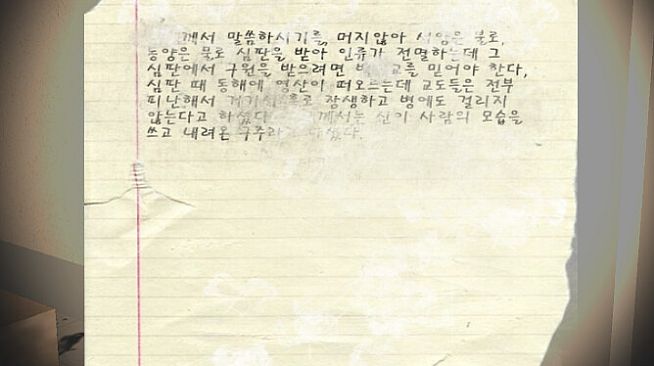 께서 말씀하시기를, 머지않아 서양은 불로,
동양은 물로 심판을 받아 인류가 전멸하는데 그
심판에서 구원을 받으려면 교를 믿어야 한다,
심판 때 동해에 영산이 떠오르는데 교도들은 전부
피난해서 거기 장생하고 병에도 걸리지
않는다고 하셨다 께서는 신이 사람의 모습을
쓰고 내려온 구주라고 하셨다.